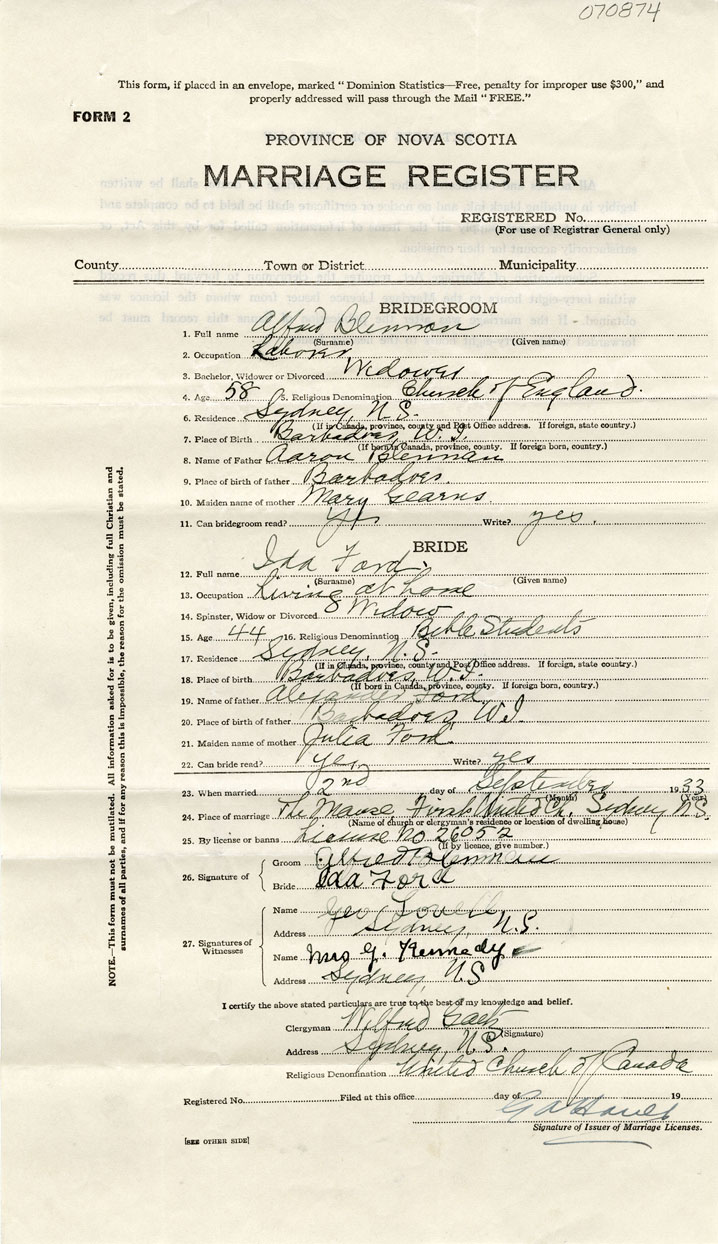 070874
This form, if placed in an envelope, marked "Dominion Statistics—Free, penalty for improper use $300," and
properly addressed will pass through the Mail "FREE."
FORM 2
PROVINCE OF NOVA SCOTIA
MARRIAGE REGISTER
REGISTERED No.
(For use of Registrar General only)
County Town or District Municipality
BRIDEGROOM
1. Full name Alfred Blenman
(Surname) (Given name)
2. Occupation Laborer
3. Bachelor, Widower or Divorced Widower
4. Age 58 5. Religious Denomination Church of England.
6. Residence Sydney, N.S.
(If in Canada, province, county and Post Office address. If foreign, state country.)
7. Place of Birth Barbadoes, W.I.
(If born in Canada, province, county. If foreign born, country.)
8. Name of Father Aaron Blenman
9. Place of birth of father Barbadoes.
10. Maiden name of mother Mary Gearns
11. Can bridegroom read? Yes Write? yes.
BRIDE
12. Full name Ida Ford.
(Surname) (Given name)
13. Occupation Living at home
14. Spinster, Widow or Divorced Widow
15. Age 44 16. Religious Denomination Bible Students
17. Residence Sydney, N.S.
(If in Canada, province, county and Post Office address. If foreign, state country.)
18. Place of birth Barbadoes, W.I.
(If born in Canada, province, county. If foreign born, country.)
19. Name of father Alexander Ford
20. Place of birth of father Barbadoes, W.I
21. Maiden name of mother Julia Ford
22. Can bride read? yes Write? yes
23. When married 2nd day of September 1933
(Month) (Year)
24. Place of marriage The Manse, First United Ch, Sydney N.S.
(Name of church or clergyman's residence or location of dwelling house)
25. By license or banns License No 26052
(If by licence, give number.)
26. Signature of Groom Alfred Blenman
Bride Ida Ford
27. Signatures of Witnesses
Name Geo Lovell
Address Sydney N.S.
Name Mrs G. Kennedy
Address Sydney, N.S
I certify the above stated particulars are true to the best of my knowledge and belief.
Clergyman Wilfred Gaetz
(Signature)
Address Sydney, N.S.
Religious Denomination United Church of Canada
Registered No. Filed at this office day of 19
Signature of Issuer of Marriage Licenses.
[SEE OTHER SIDE]
NOTE.—This form must not be mutilated. All information asked for is to be given, including full Christian and
surnames of all parties, and if for any reason this is impossible, the reason for the omission must be stated.